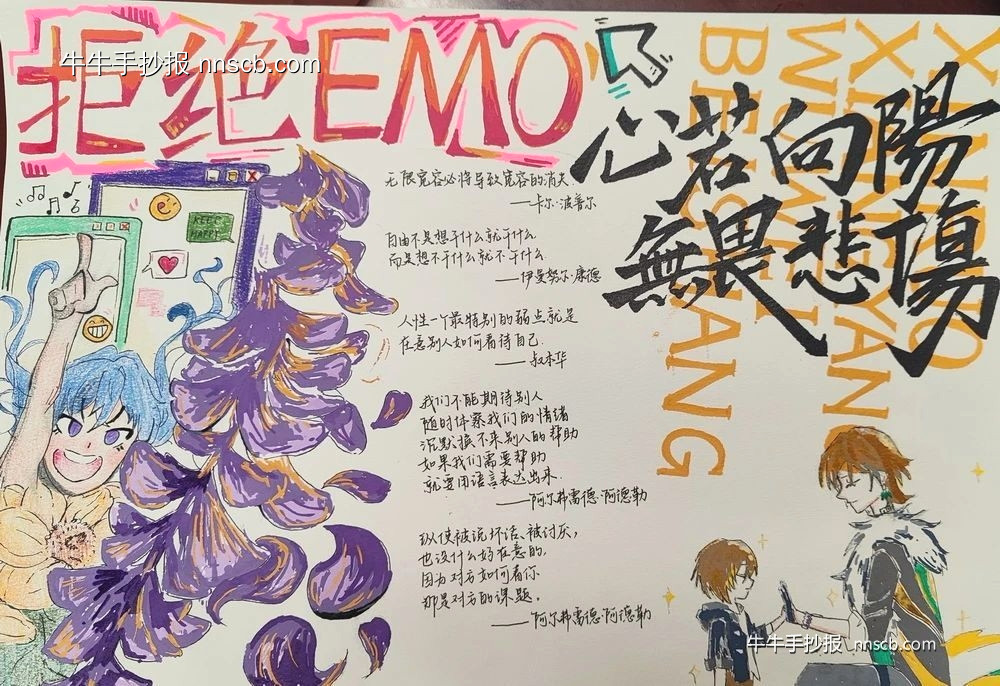 拒绝EMO
牛牛手抄报 nnscb.com
心若向陽
無畏悲傷
XIN RUO
XIANG YANG
WU WEI
BEI SHANG
KEEP
HAPPY
无限宽容必将导致宽容的消失.
——卡尔·波普尔
自由不是想干什么就干什么
而是想不干什么就不干什么
——伊曼努尔·康德
人性一个最特别的弱点就是
在意别人如何看待自己.
——叔本华
我们不能期待别人
随时体察我们的情绪
沉默换不来别人的帮助
如果我们需要帮助
就要用语言表达出来.
——阿尔弗雷德·阿德勒
纵使被说坏话、被讨厌,
也没什么好在意的,
因为对方如何看你
那是对方的课题。
——阿尔弗雷德·阿德勒
牛牛手抄报 nnscb.com